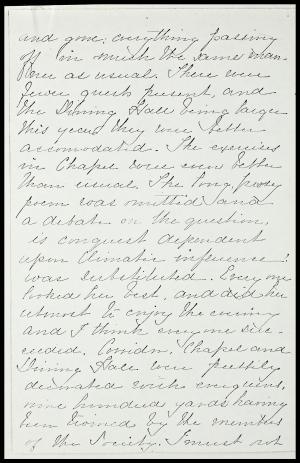 and gone; everything passing
off in much the same man-
ner as usual. There were
fewer guests present, and
the Dining Hall being larger
this year, they were better
accomodated. The exercises
in Chapel were even better
than usual. The long, prosy
poem was omitted and
a debate on the question,
is conquest dependent
upon climatic influence?
was substituted. Every one
looked her best, and did her
utmost to enjoy the evening
and I think everyone suc-
ceeded. Corridor, Chapel and
Dining Hall were prettily
decorated with evergreens,
nine hundred yards having
been twined by the members
of the Society. I must not